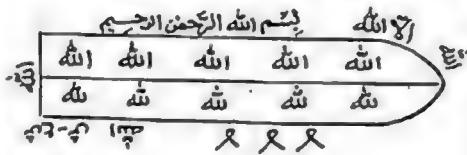 الا الله بسم الله الرحمن الرحيم
الله
الله الله الله الله الله
لله لله لله لله لله
الله
الله